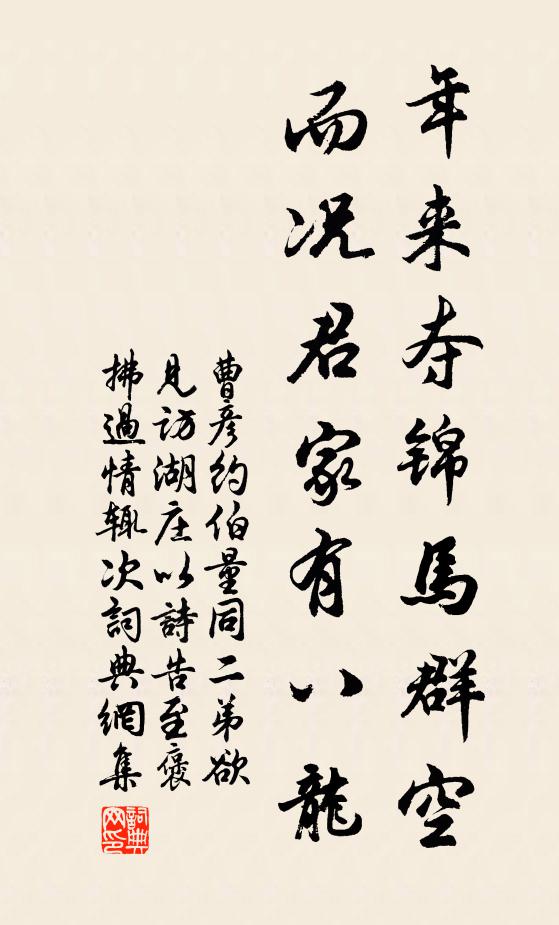 年来夺锦馬群空
而况君家有八龍
曹彦约伯量同二弟欲
見访湖庄以詩告至褒
拂過情辄次詞典網集
詞典网印